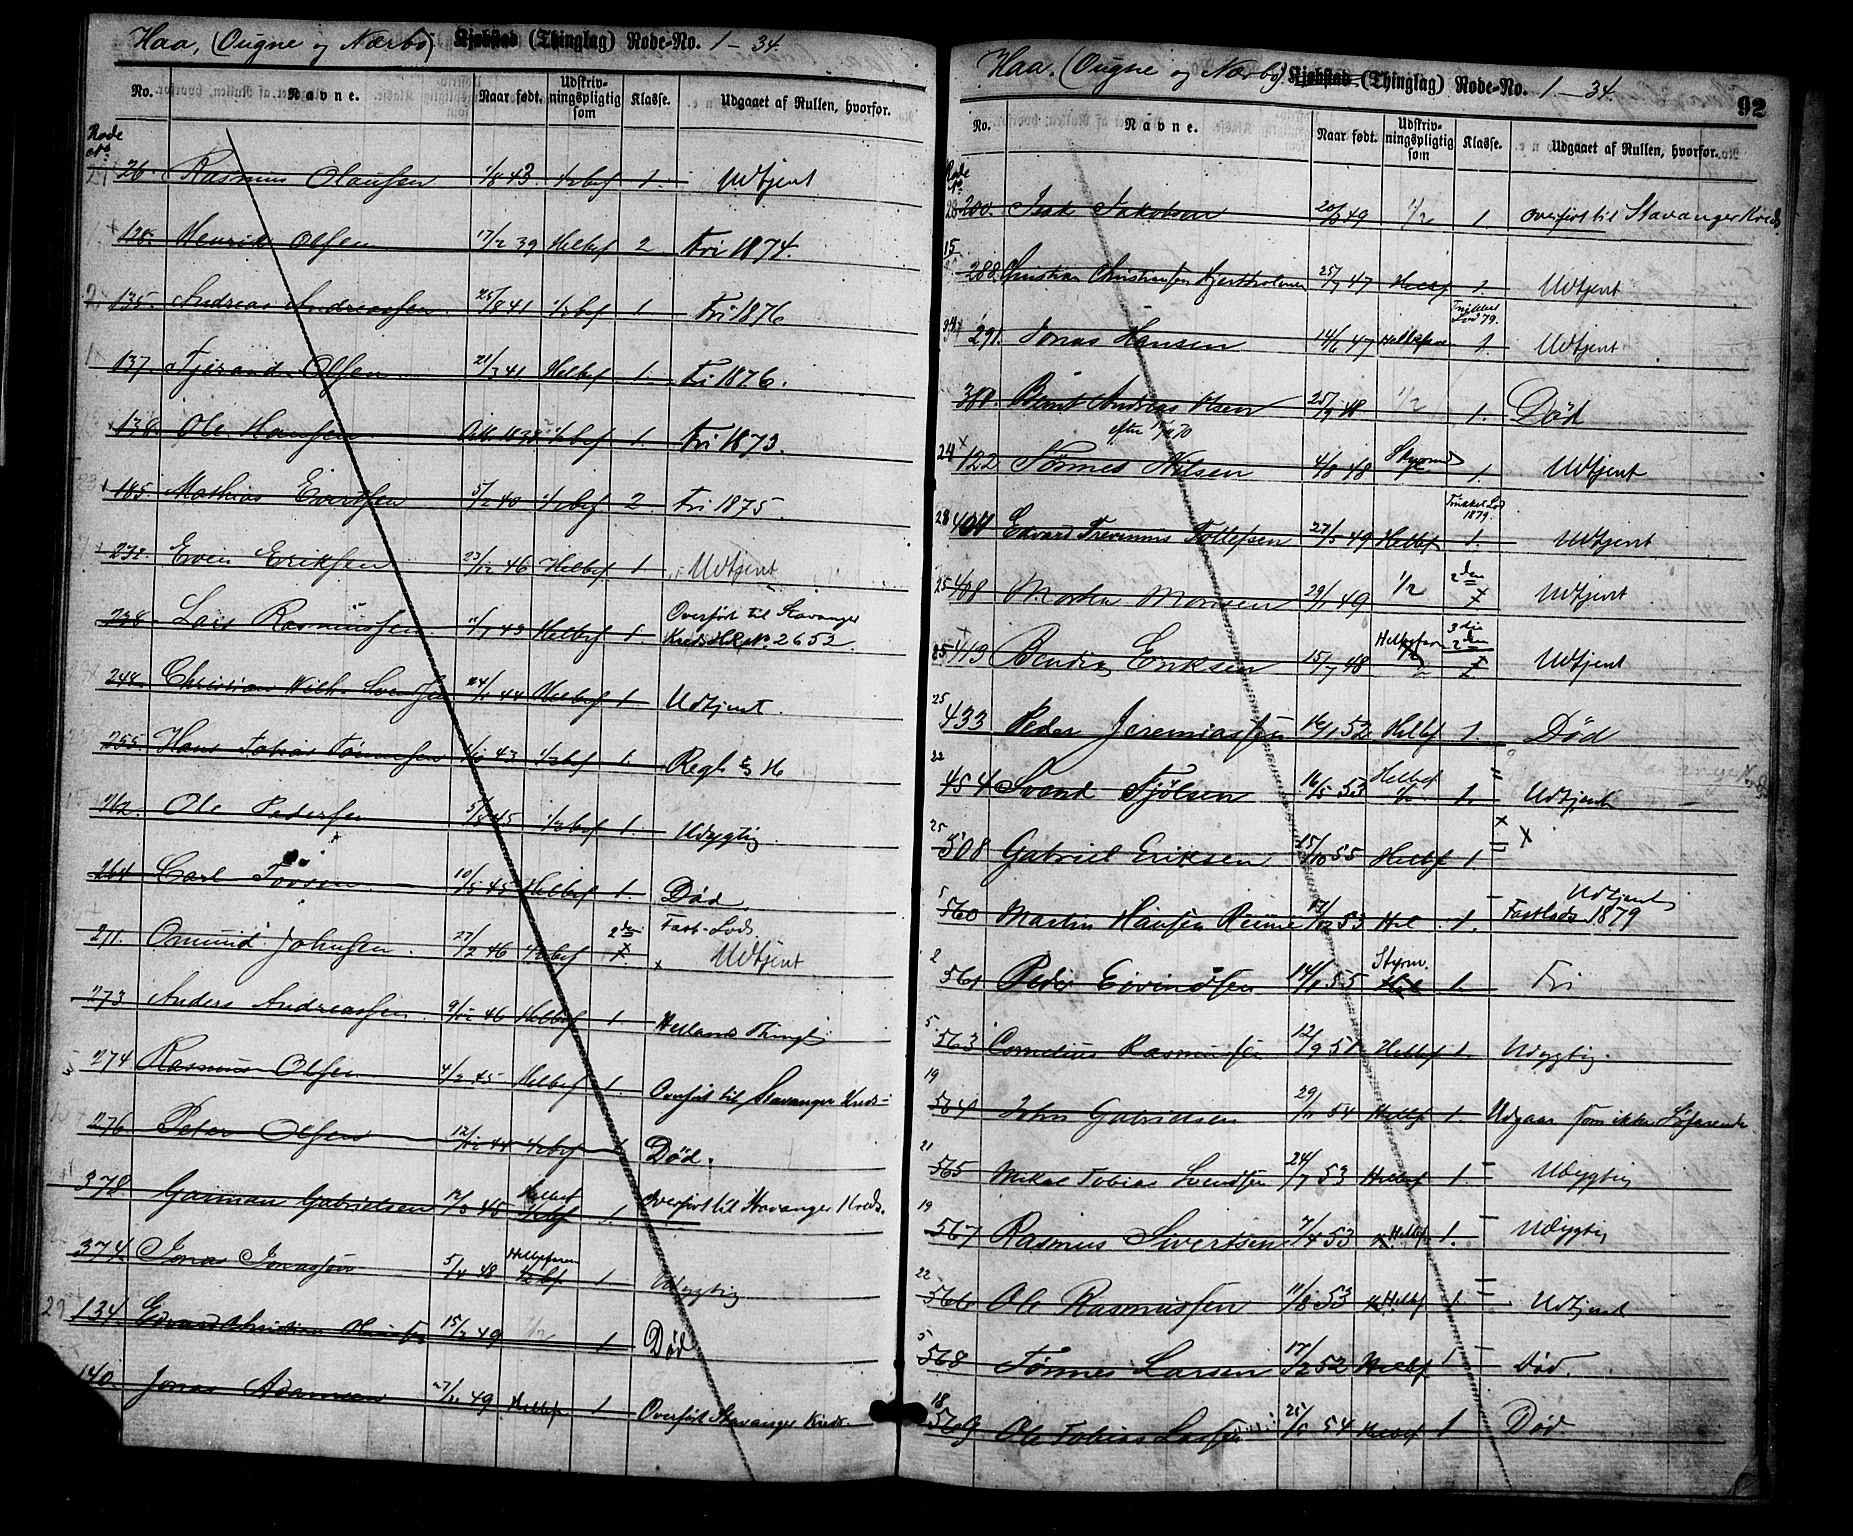 Haa, (Ougne og Nærbø) Kjøbstad (Thinglag) Rode-No. 1 – 34.
No. Navne. Naar født. Udskriv-ningspligtig som Klasse. Udgaaet af Rullen, hvorfor.
Rode No
26. Rasmus Olaussen 43 1/2bef 1. Udtjent
128. Henrik Olsen 17/2 39 Helbef 2 Fri 1874.
135. Andreas Andreassen 25/8 41 1/2bef 1 Fri 1876
137 Tjerand Olsen 21/3 41 Helbef 1. Fri 1876.
138. Ole Hansen 1/2bef 1. Fri 1873.
185. Mathias Evertsen 5/2 40 1/2bef 2 Fri 1875.
232. Even Eriksen 23/12 46 Helbef 1 Udtjent
238. Lars Rasmussen 43 Helbef 1. Overført til Stavanger
Kreds No. 2652.
244. Christian Wilh. Svendsen 44 Helbef 1 Udtjent.
255. Hans Tobias Tønnesen 43 1/2bef 1.
262. Ole Pedersen 5/8 45 1/2bef 1. Udygtig
264 Carl 10/5 45 Helbef 1. Død
271. Omund Johnsen. 27/2 46 1/2bef 2den 1. Fast-Lods.
x Udtjent
273 Anders Andreassen 9/12 46 Helbef 1 Hetlands Thingl
274 Rasmus Olsen 4/2 45 Helbef 1. Overført til Stavanger Kreds
276. Peter Olsen 44 1/2bef 1 Død.
378 Gabrielsen 45 Helbef 1/2bef 1. Overført til Stavanger Kreds.
374 Jonas Jonassen 5/4 48 Helbefaren 1/2bef 1 Udygtig
29 134. Edvard 15/2 49 1/2 1 Død
140. Jonas Adamsen 49 Helbef 1. Overført Stavanger Kreds
Haa. (Ougne og Nærbø). Kjøbstad (Thinglag) Rode-No. 1 – 34.
92
No. Navne. Naar født. Udskriv-ningspligtig som Klasse. Udgaaet af Rullen, hvorfor.
Rode No
28 200. Isak Jakobsen 49 1/2 1. Overført til Stavanger Kreds.
15
288. Christian Christensen 25/7 47 Helbf 1. Udtjent
Lod 79.
291. Jonas Hansen 14/6 47 Helbefaren 1. Udtjent
Bernt Andreas Olsen 25/9 48 1/2 1. Død
efter
24 x 122 Tønnes Nilsen 4/8 48 1. Udtjent
1879.
28 404 Edvard Tollefsen 27/5 49 Helbf 1. Udtjent
25 408 Morten Monsen 29/1 49 1/2 2den Udtjent
25 413 Bendix Eriksen 15/7 48 Helbefaren 3die 2den Udtjent
25 433 Peder Jeremiassen 52 Helbf 1. Død
22 454 Svend Fjølsen 16/5 53 Helbef 1/2 1. Udtjent
25 508 Gabriel Eriksen 15/10 55 Helbf 1. x
5 560 Martin Hansen 17/12 53 Hel 1. Udtjent
Fastlods 1879
2 561 Peder Eivindsen 14/1 55 Styrm. Hel 1. Fri
5 563 Cornelius Rasmussen 12/9 51 Helbef 1. Udygtig.
19 564 John Gabrielsen 29/11 54 Helbf 1. Udgaar som ikke Søfarende
21 565 Mikal Tobias Svendsen 24/7 53 Helbef 1 Udygtig
19 567 Rasmus Sivertsen 7/4 53 Helbef 1. Udygtig
22 566 Ole Rasmussen 11/8 53 Helbf 1. Udtjent
5 568 Tønnes Larsen 17/2 52 Helbf 1 Død.
18 569 Ole Tobias Larsen 54 Helbef 1 Død